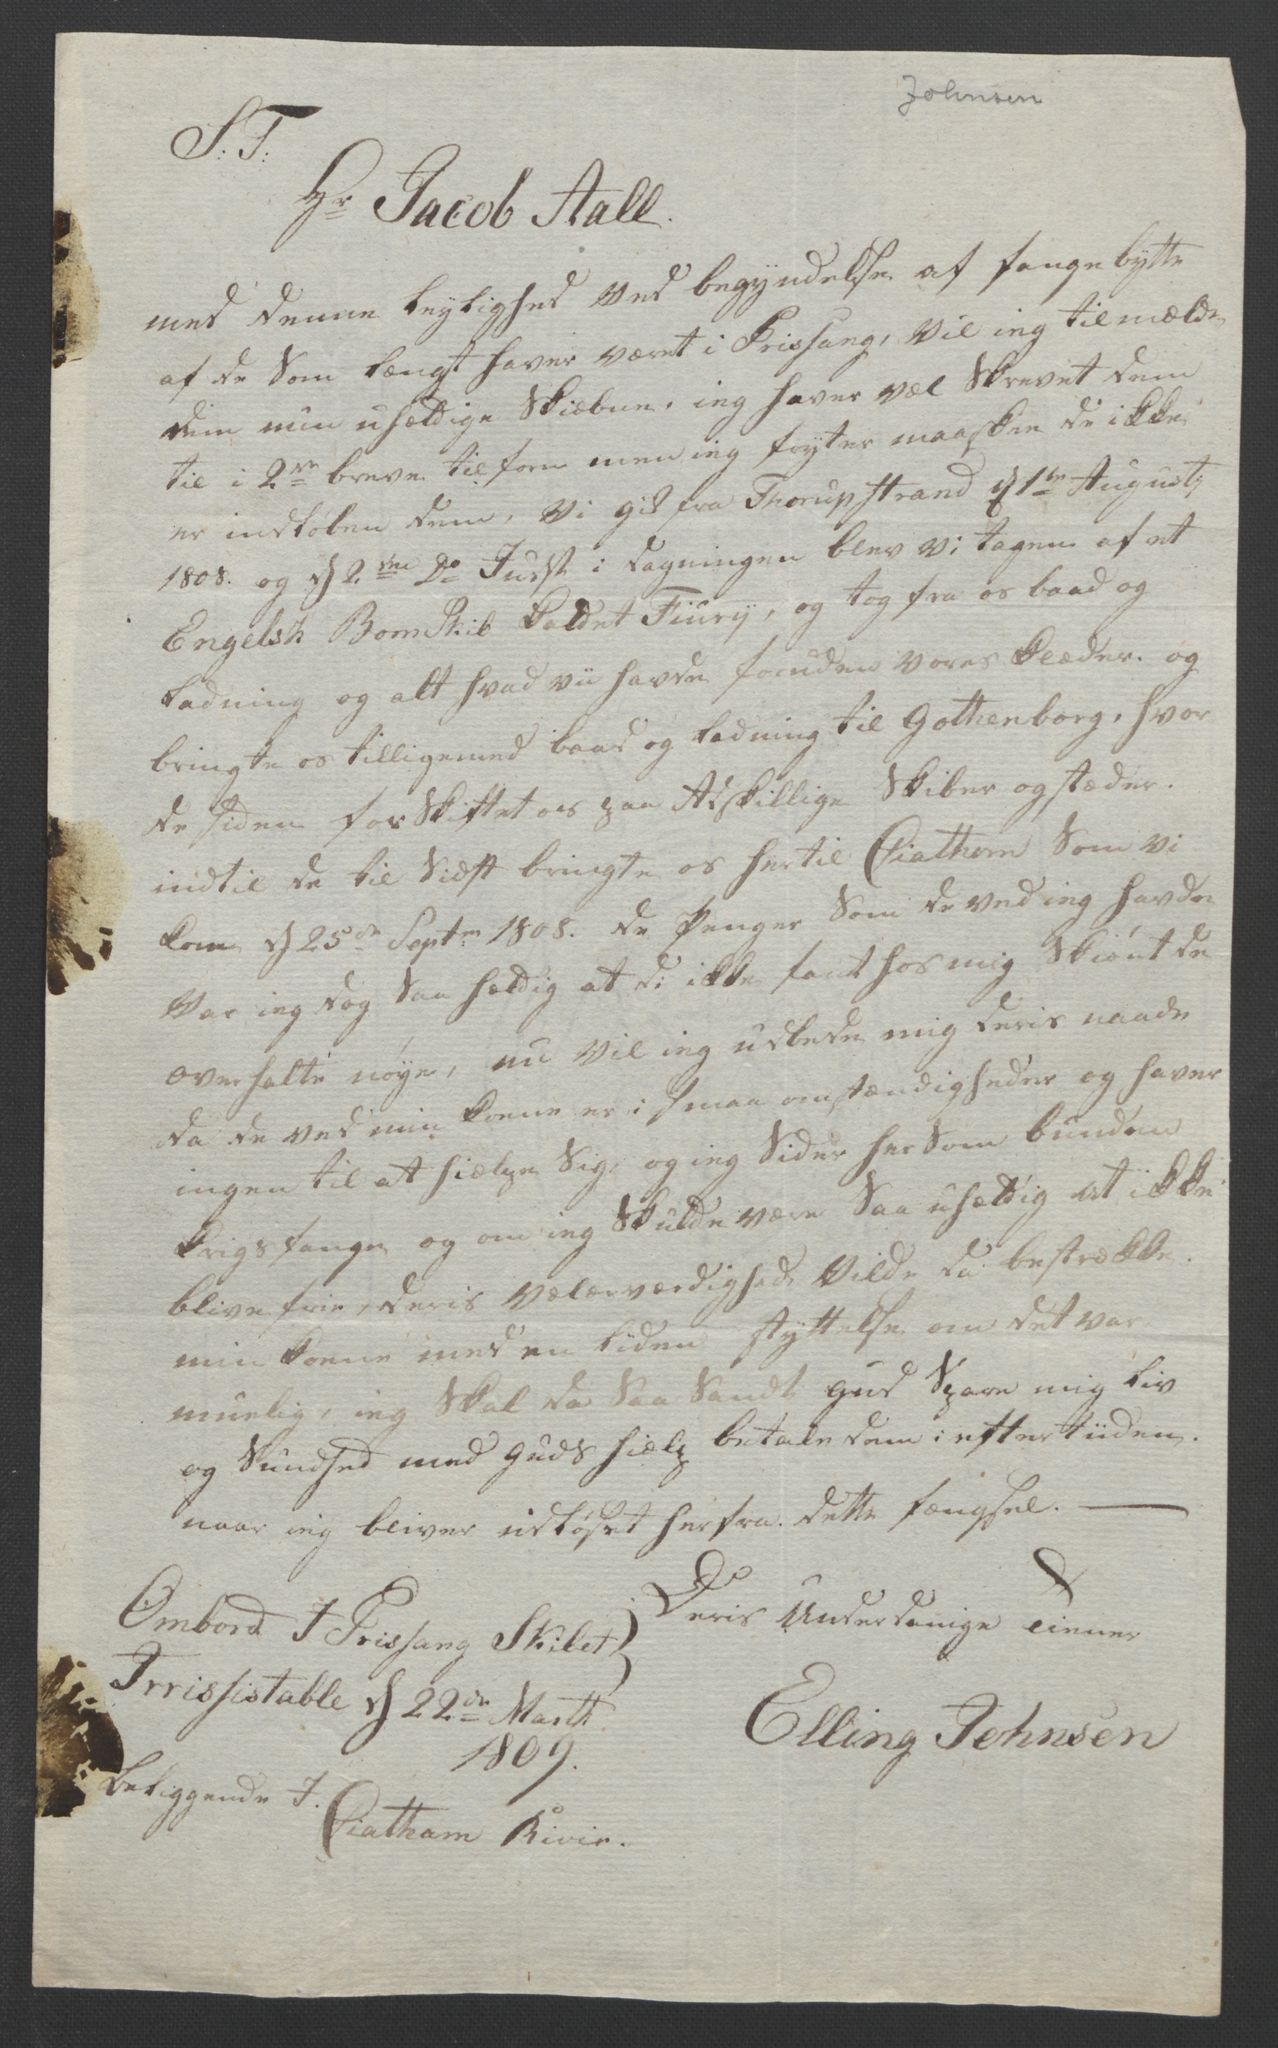 Johnsen
S: T:
Hr Jacob Aall.
med denne leylighed ved begyndelse af fangebytte
af de som længst haver været i Prissang, vil ieg tilmælde
dem min uheldige Skiæbne, ieg haver vel Skrevet dem
til i 2de breve tilforn men ieg frygter maaskee de ikke
er indløben dem, Vi gik fra Thorupstrand d 1te Augustj
1808. og d 2den Do Just i dagningen blev vi tagen af et
Engelsk BomSkib kaldet Fiury, og tog fra os baad og
ladning og alt hvad vii havde foruden vores klæder. og
bringte os tilligemed baad og ladning til Gothenborg, hvor
de siden forSkiftet os paa Adskillige Skiber og stæder.
indtil de til Sidst bringte os hertil Ciathem Som vi
kom d 25de Septm 1808. de Penger Som de ved ieg havde
var ieg dog Saa heldig at di ikke fant hos mig Skiønt de
overhalte nøye, nu vil ieg udbede mig deris naade
da de ved min kone er i smaa omstændigheder og haver
ingen til at hielpe Sig, og ieg Sider her Som bunden
krigsfange og om ieg Skulde være Saa uheldig at ikke
blive frie, deris velærværdighed vilde da bestrække
min kone med en liden styttelse om det var
muelig, ieg Skal da Saa Sandt gud Spare mig liv
og Sundhed med guds hielp betale dem i eftertiiden.
naar ieg bliver udløst herfra dette fængsel. —
Deris Underdanige tienner
Elling Johnsen
Ombord I Prissang Skibet
Irrissistable d 22de Martt
1809.
beliggende I.
Ciatham Rivir.